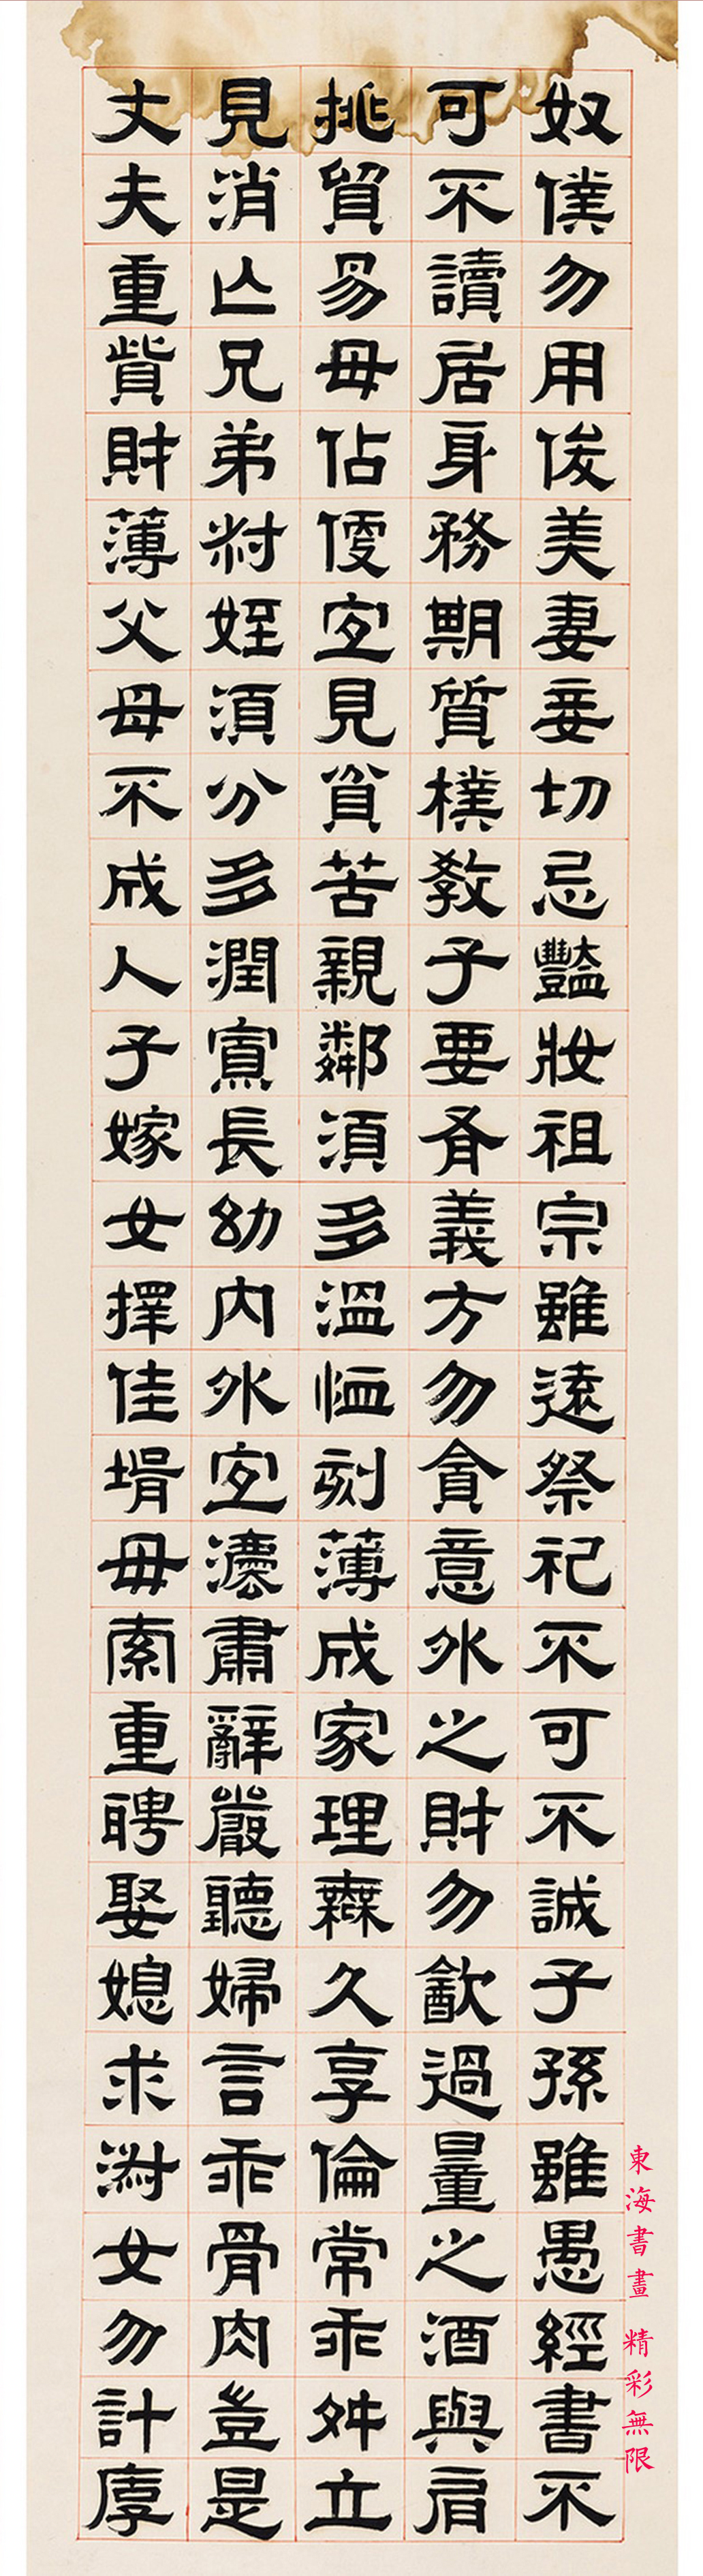 奴僕勿用俊美妻妾切忌豔妝祖宗雖遠祭祀不可不誠子孫雖愚經書不
可不讀居身務期質樸教子要有義方勿貪意外之財勿飲過量之酒與肩
挑貿易毋佔便宜見貧苦親鄰須多溫恤刻薄成家理無久享倫常乖舛立
見消亡兄弟叔姪須分多潤寡長幼內外宜灋肅辭嚴聽婦言乖骨肉豈是
丈夫重貲財薄父母不成人子嫁女擇佳壻毋索重聘娶媳求淑女勿計厚
東海書畫 精彩無限